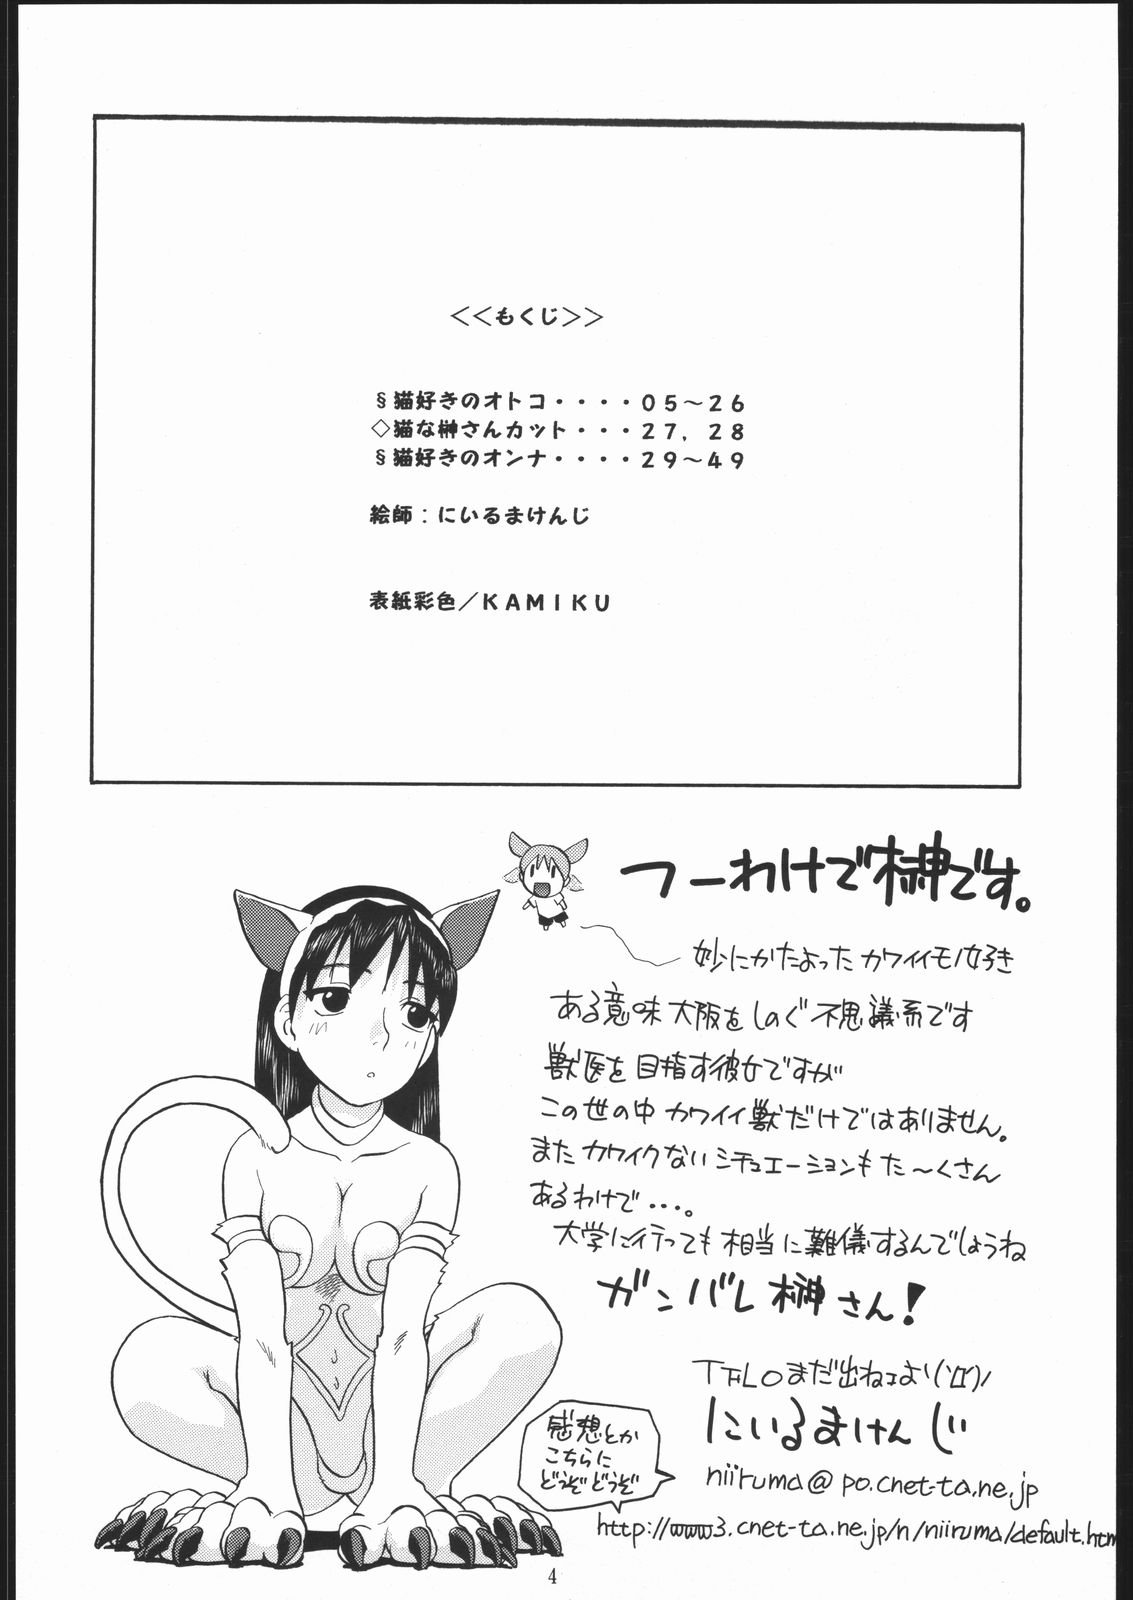 ＜＜もくじ＞＞
§猫好きのオトコ・・・・０５～２６
◇猫な榊さんカット・・・２７，２８
§猫好きのオンナ・・・・２９～４９
絵師：にいるまけんじ
表紙彩色／ＫＡＭＩＫＵ
つーわけで榊です。
妙にかたよったカワイイモノ好き
ある意味大阪をしのぐ不思議系です
獣医を目指す彼女ですが
この世の中カワイイ獣だけではありません。
またカワイクないシチュエーションもた～くさん
あるわけで・・・。
大学に行っても相当に難儀するんでしょうね
ガンバレ榊さん！
まだ出ねェよ
にいるまけんじ
感想とか
こちらに
どうぞどうぞ
niiruma@po.cnet-ta.ne.jp
http://www3.cnet-ta.ne.jp/n/niiruma/default.htm
4